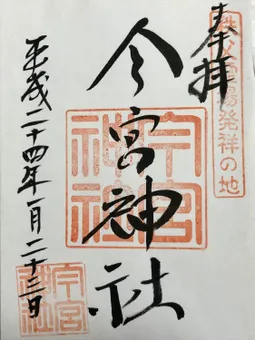 奉拝
秩父霊場発祥の地
今宮神社
今宮神社
平成二十四年一月二十三日
今宮神社